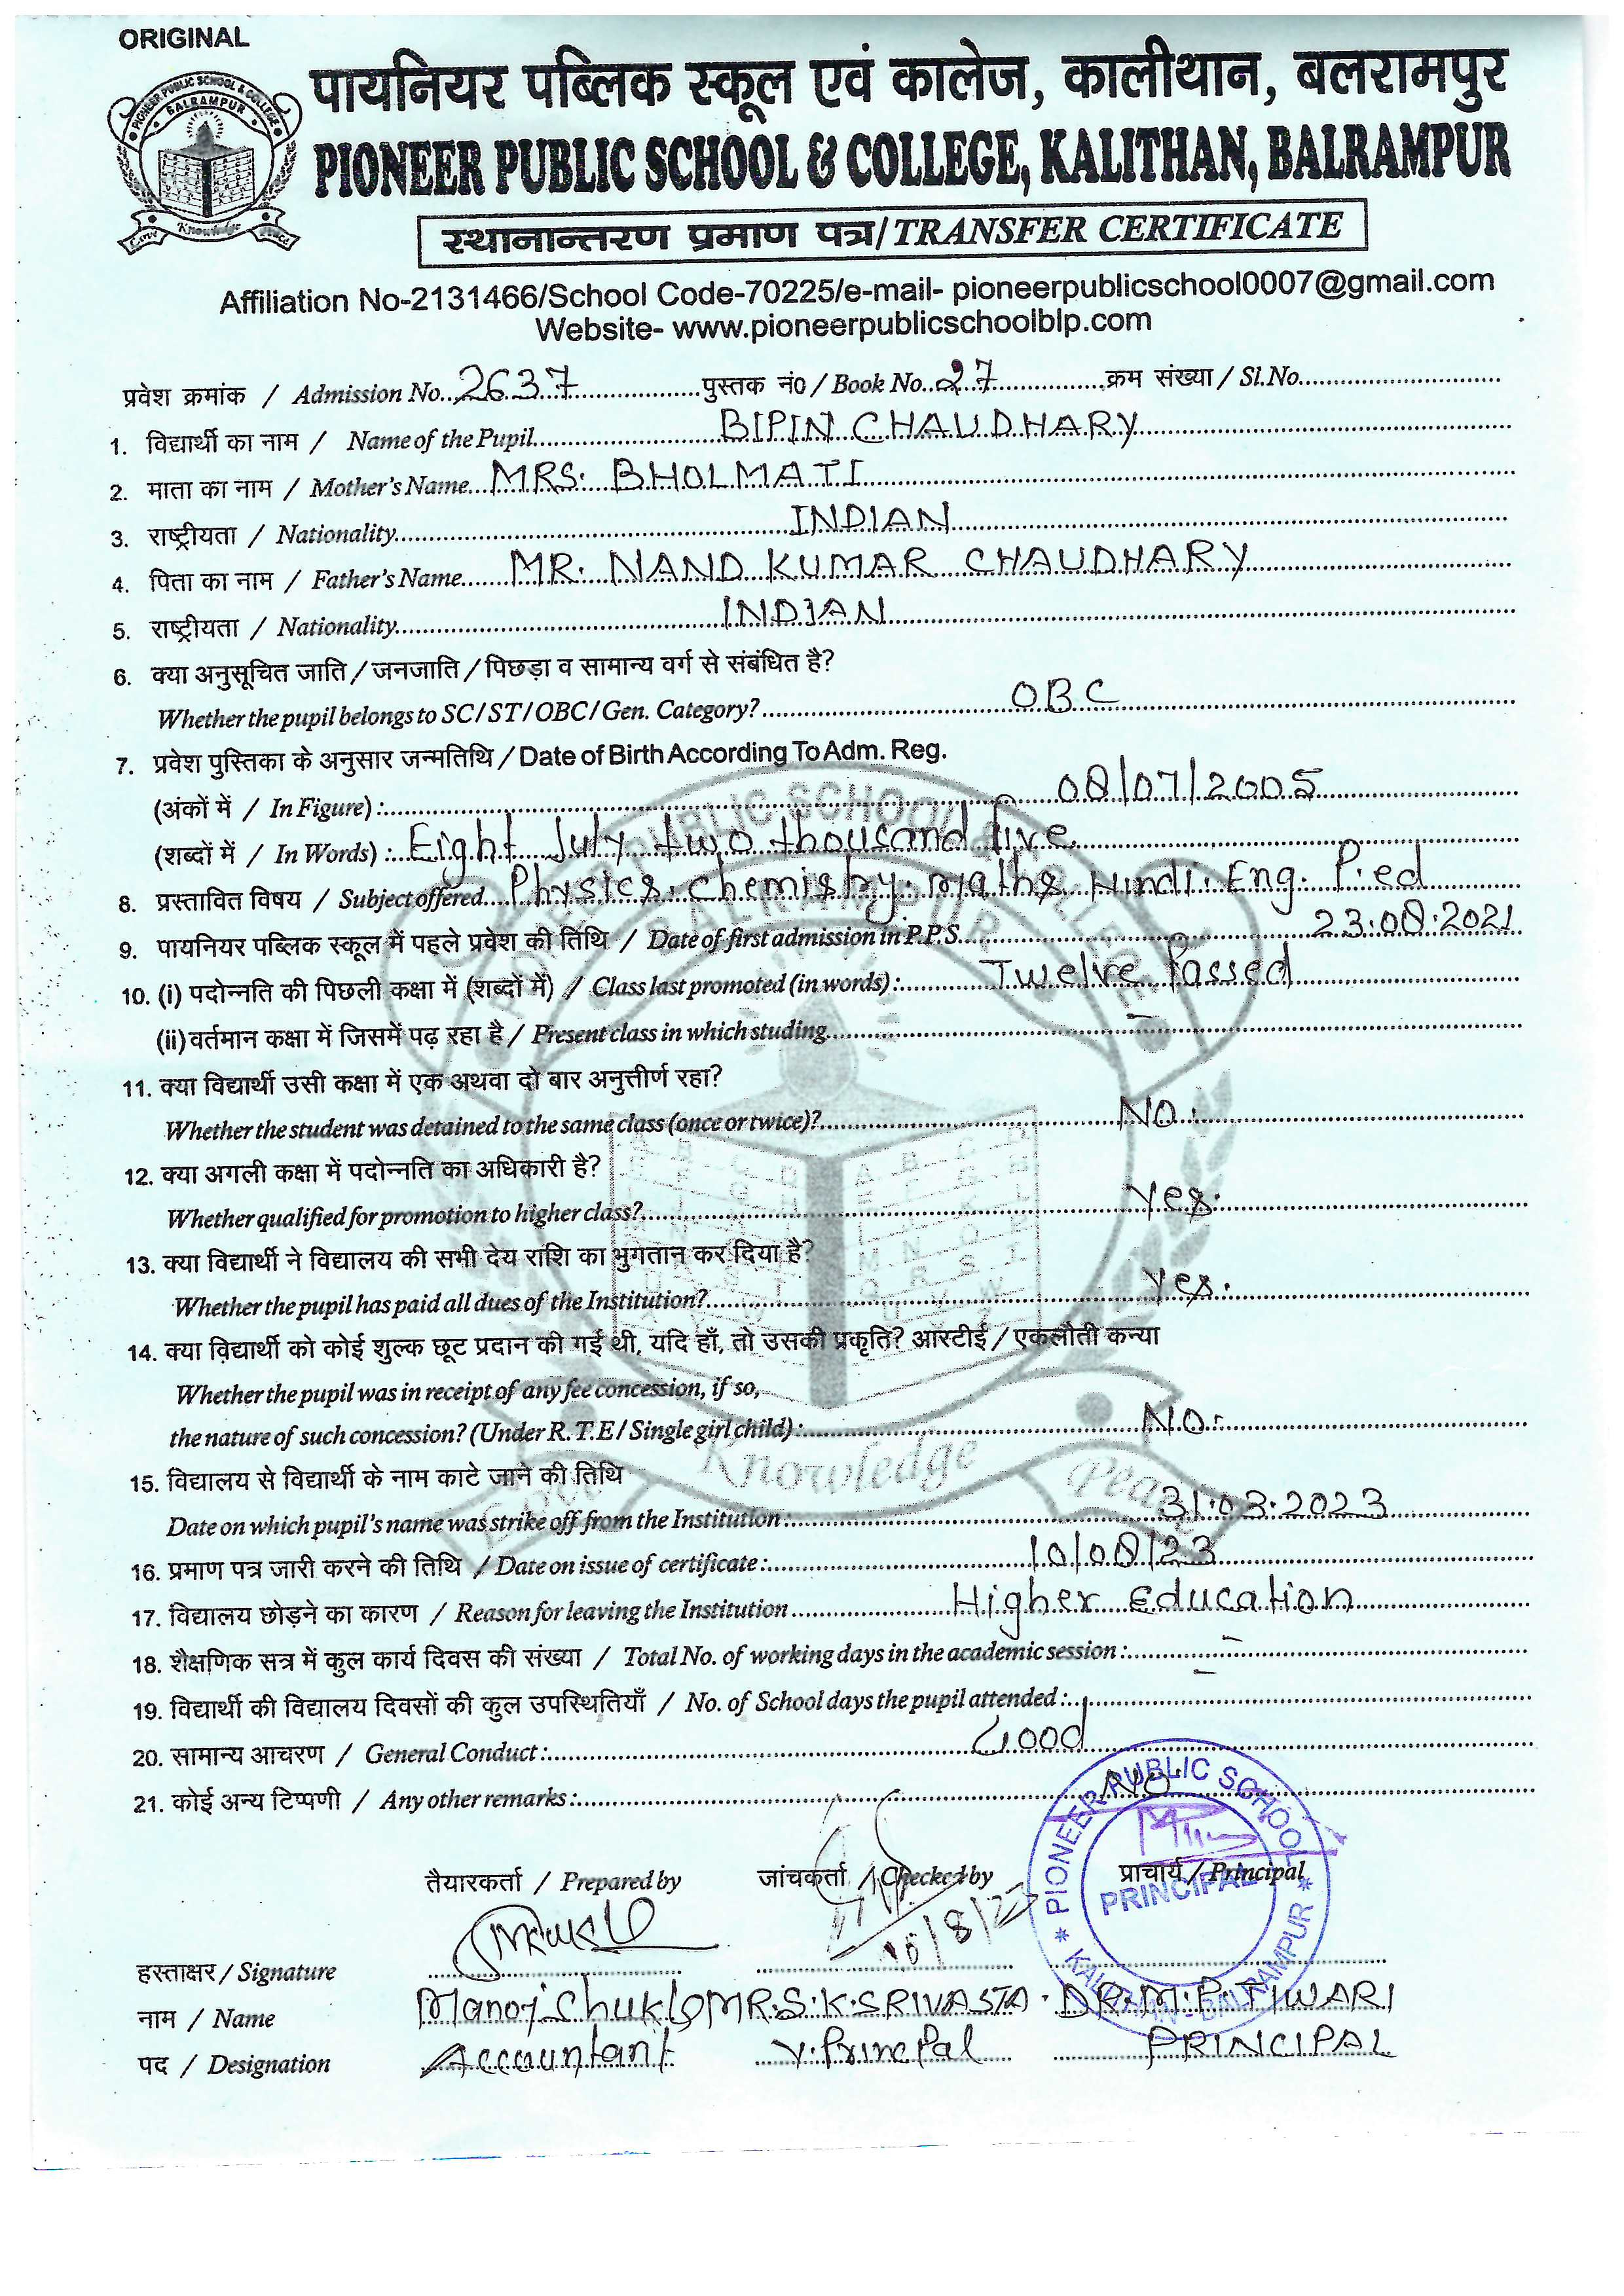 ORIGINAL
PIONEER PUBLIC SCHOOL & COLLEGE
BALRAMPUR
Love Knowledge Peace
पायनियर पब्लिक स्कूल एवं कालेज, कालीथान, बलरामपुर
PIONEER PUBLIC SCHOOL & COLLEGE, KALITHAN, BALRAMPUR
स्थानान्तरण प्रमाण पत्र/TRANSFER CERTIFICATE
Affiliation No-2131466/School Code-70225/e-mail- pioneerpublicschool0007@gmail.com
Website- www.pioneerpublicschoolblp.com
प्रवेश क्रमांक / Admission No. 2637 पुस्तक नं0 / Book No. 27 क्रम संख्या / Sl.No.
1. विद्यार्थी का नाम / Name of the Pupil BIPIN CHAUDHARY
2. माता का नाम / Mother's Name MRS. BHOLMATI
3. राष्ट्रीयता / Nationality INDIAN
4. पिता का नाम / Father's Name MR. NAND KUMAR CHAUDHARY
5. राष्ट्रीयता / Nationality INDIAN
6. क्या अनुसूचित जाति / जनजाति / पिछड़ा व सामान्य वर्ग से संबंधित है?
Whether the pupil belongs to SC/ST/OBC/Gen. Category? OBC
7. प्रवेश पुस्तिका के अनुसार जन्मतिथि / Date of Birth According To Adm. Reg.
(अंकों में / In Figure) : 08/07/2005
(शब्दों में / In Words) : Eight July two thousand five
8. प्रस्तावित विषय / Subject offered Physics. Chemistry. Maths Hindi. Eng. P.ed
9. पायनियर पब्लिक स्कूल में पहले प्रवेश की तिथि / Date of first admission in P.P.S. 23.08.2021
10. (i) पदोन्नति की पिछली कक्षा में (शब्दों में) / Class last promoted (in words) : Twelve Passed
(ii) वर्तमान कक्षा में जिसमें पढ़ रहा है / Present class in which studing
11. क्या विद्यार्थी उसी कक्षा में एक अथवा दो बार अनुत्तीर्ण रहा?
Whether the student was detained to the same class (once or twice)? NO.
12. क्या अगली कक्षा में पदोन्नति का अधिकारी है?
Whether qualified for promotion to higher class? Yes.
13. क्या विद्यार्थी ने विद्यालय की सभी देय राशि का भुगतान कर दिया है?
Whether the pupil has paid all dues of the Institution? Yes.
14. क्या विद्यार्थी को कोई शुल्क छूट प्रदान की गई थी, यदि हाँ, तो उसकी प्रकृति? आरटीई / एकलौती कन्या
Whether the pupil was in receipt of any fee concession, if so,
the nature of such concession? (Under R.T.E/Single girl child) : NO.
15. विद्यालय से विद्यार्थी के नाम काटे जाने की तिथि
Date on which pupil's name was strike off from the Institution : 31.03.2023
16. प्रमाण पत्र जारी करने की तिथि / Date on issue of certificate : 10/08/23
17. विद्यालय छोड़ने का कारण / Reason for leaving the Institution Higher Education
18. शैक्षणिक सत्र में कुल कार्य दिवस की संख्या / Total No. of working days in the academic session : –
19. विद्यार्थी की विद्यालय दिवसों की कुल उपस्थितियाँ / No. of School days the pupil attended : –
20. सामान्य आचरण / General Conduct : Good
21. कोई अन्य टिप्पणी / Any other remarks : NO
तैयारकर्ता / Prepared by जांचकर्ता / Checked by प्राचार्य / Principal
PIONEER PUBLIC SCHOOL
PRINCIPAL
KALITHAN-BALRAMPUR
10/8/23
हस्ताक्षर / Signature
नाम / Name Manoj Shukla MR.S.K.SRIVASTA. DR.M.P.TIWARI
पद / Designation Accountant V.Principal PRINCIPAL